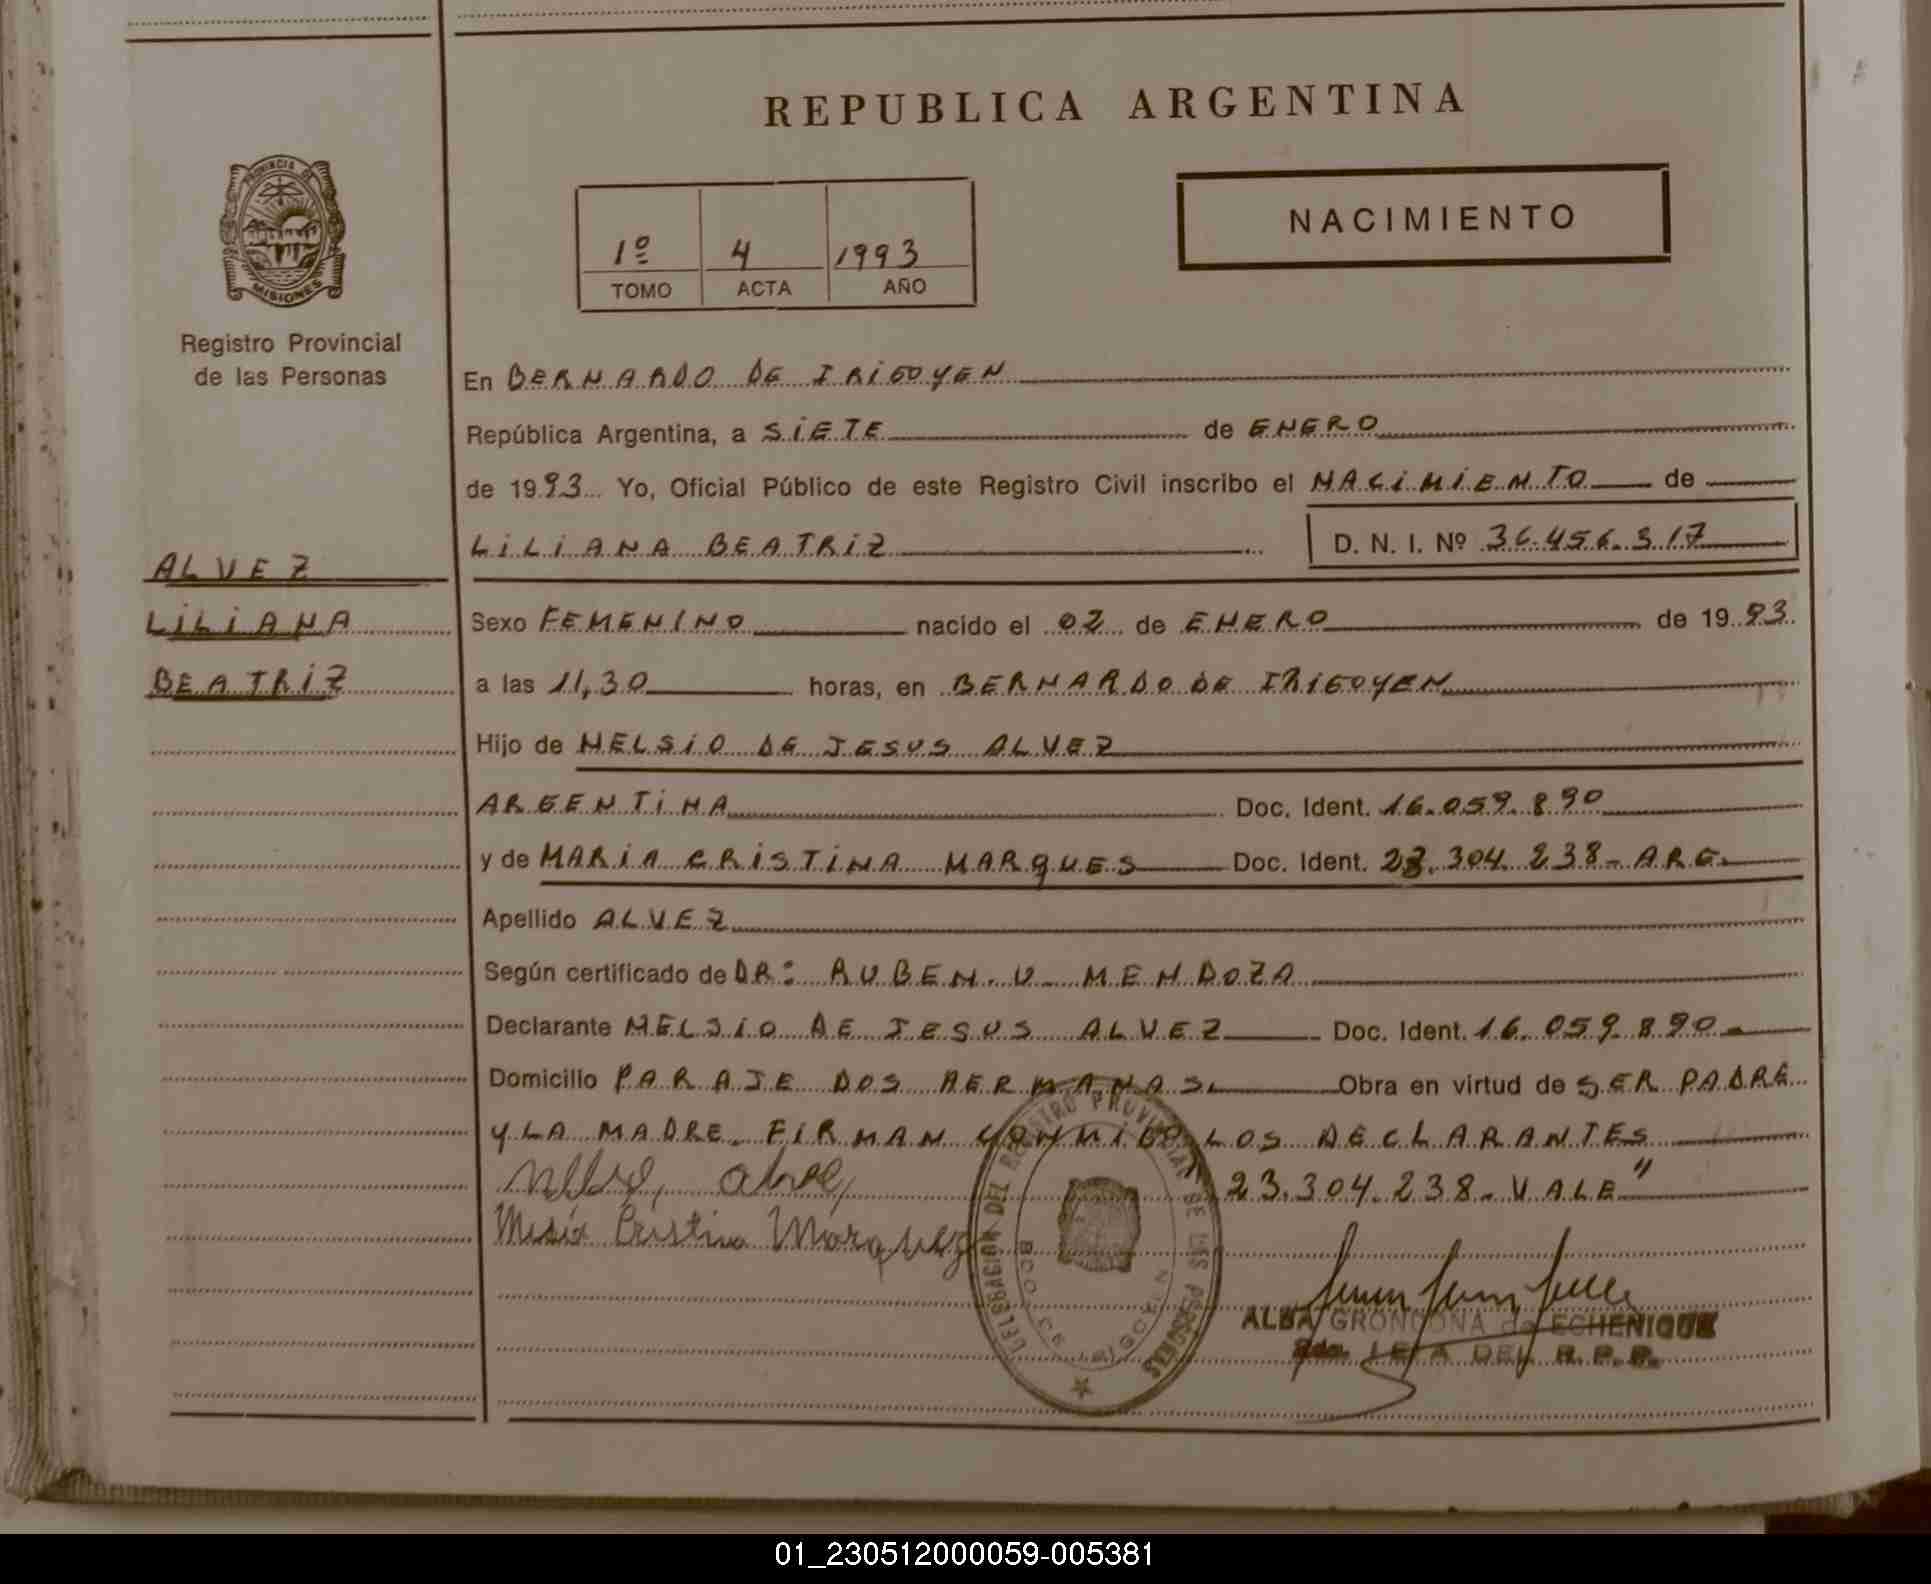 REPUBLICA ARGENTINA
PROVINCIA DE
MISIONES
Registro Provincial
de las Personas
1º 4 1993
TOMO ACTA AÑO
NACIMIENTO
En BERNARDO DE IRIGOYEN
República Argentina, a SIETE de ENERO
de 1993 Yo, Oficial Público de este Registro Civil inscribo el NACIMIENTO de
LILIANA BEATRIZ D. N. I. Nº 36.456.317
ALVEZ
LILIANA
BEATRIZ
Sexo FEMENINO nacido el 02 de ENERO de 1993
a las 11,30 horas, en BERNARDO DE IRIGOYEN
Hijo de NELSIO DE JESUS ALVEZ
ARGENTINA Doc. Ident. 16.059.890
y de MARIA CRISTINA MARQUES Doc. Ident. 23.304.238- ARG.
Apellido ALVEZ
Según certificado de DR: RUBEN. V. MENDOZA
Declarante NELSIO DE JESUS ALVEZ Doc. Ident. 16.059.890.-
Domicilio PARAJE DOS HERMANAS. Obra en virtud de SER PADRE
Y LA MADRE. FIRMAN CONMIGO LOS DECLARANTES
23.304.238. VALE"
María Cristina Marquez
DELEGACION DEL REGISTRO PROVINCIAL DE LAS PERSONAS
BDO. DE IRIGOYEN
ALBA GRONDONA de ECHENIQUE
2da. JEFA DEL R. P. P.
01_230512000059-005381